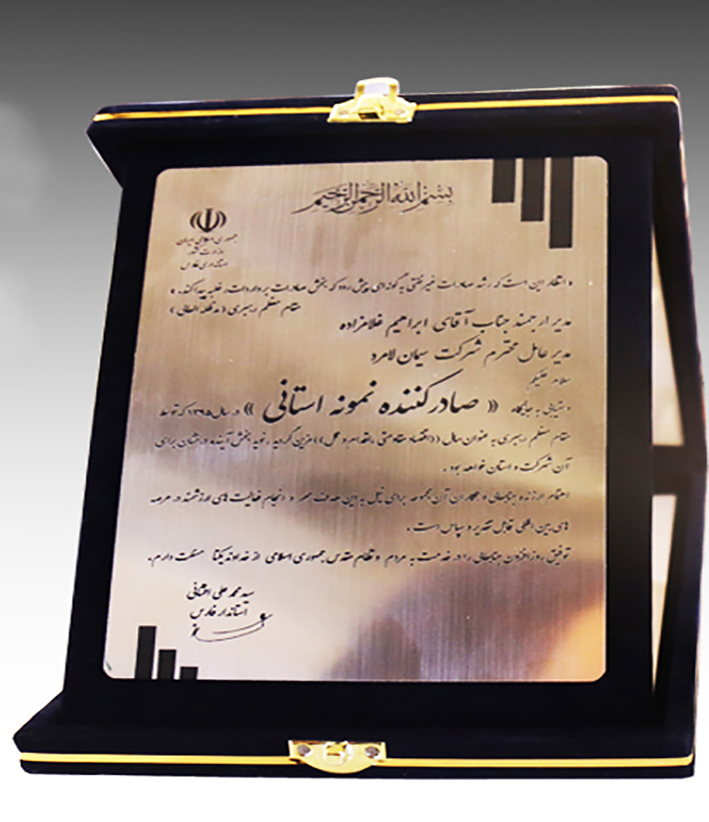 بسم الله الرحمن الرحیم
جمهوری اسلامی ایران
وزارت کشور
استانداری فارس
« انتظار این است که رشد صادرات غیرنفتی به گونه‌ای پیش رود که بخش صادرات بر واردات، غلبه پیدا کند. »
مقام معظم رهبری (مدظله العالی)
مدیر ارجمند جناب آقای ابراهیم غلامزاده
مدیرعامل محترم شرکت سیمان لامرد
سلام علیکم
دستیابی به جایگاه « صادرکننده نمونه استانی » در سال ۱۳۹۵ که توسط
مقام معظم رهبری به عنوان سال ((اقتصاد مقاومتی، اقدام و عمل)) مزین گردید، نوید بخش آینده درخشان برای
آن شرکت و استان خواهد بود.
اهتمام ارزنده جنابعالی و همکاران آن مجموعه برای نیل به این هدف مهم و انجام فعالیت های ارزشمند در عرصه
های بین المللی قابل تقدیر و سپاس است.
توفیق روزافزون جنابعالی را در خدمت به مردم و نظام مقدس جمهوری اسلامی از خداوند یکتا مسئلت دارم.
سید محمد علی افشانی
استاندار فارس